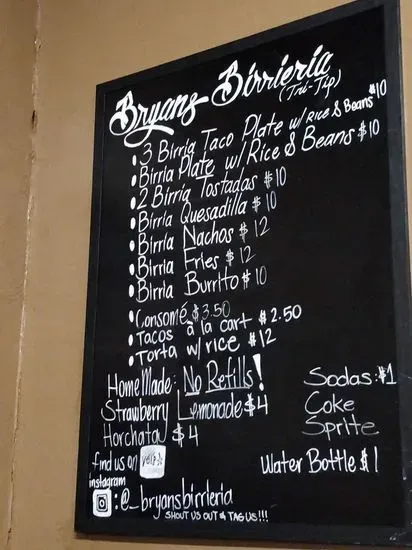 Bryans Birrieria
(Tri-Tip)
• 3 Birria Taco Plate w/ Rice & Beans $10
• Birria Plate w/ Rice & Beans $10
• 2 Birria Tostadas $10
• Birria Quesadilla $10
• Birria Nachos $12
• Birria Fries $12
• Birria Burrito $10
• Consomé $3.50
• Tacos a la cart $2.50
• Torta w/ rice $12
HomeMade: No Refills!
Strawberry Lemonade $4
Horchata $4
Sodas: $1
Coke
Sprite
Water Bottle $1
find us on yelp
instagram
: @_bryansbirrieria
SHOUT US OUT & TAG US!!!